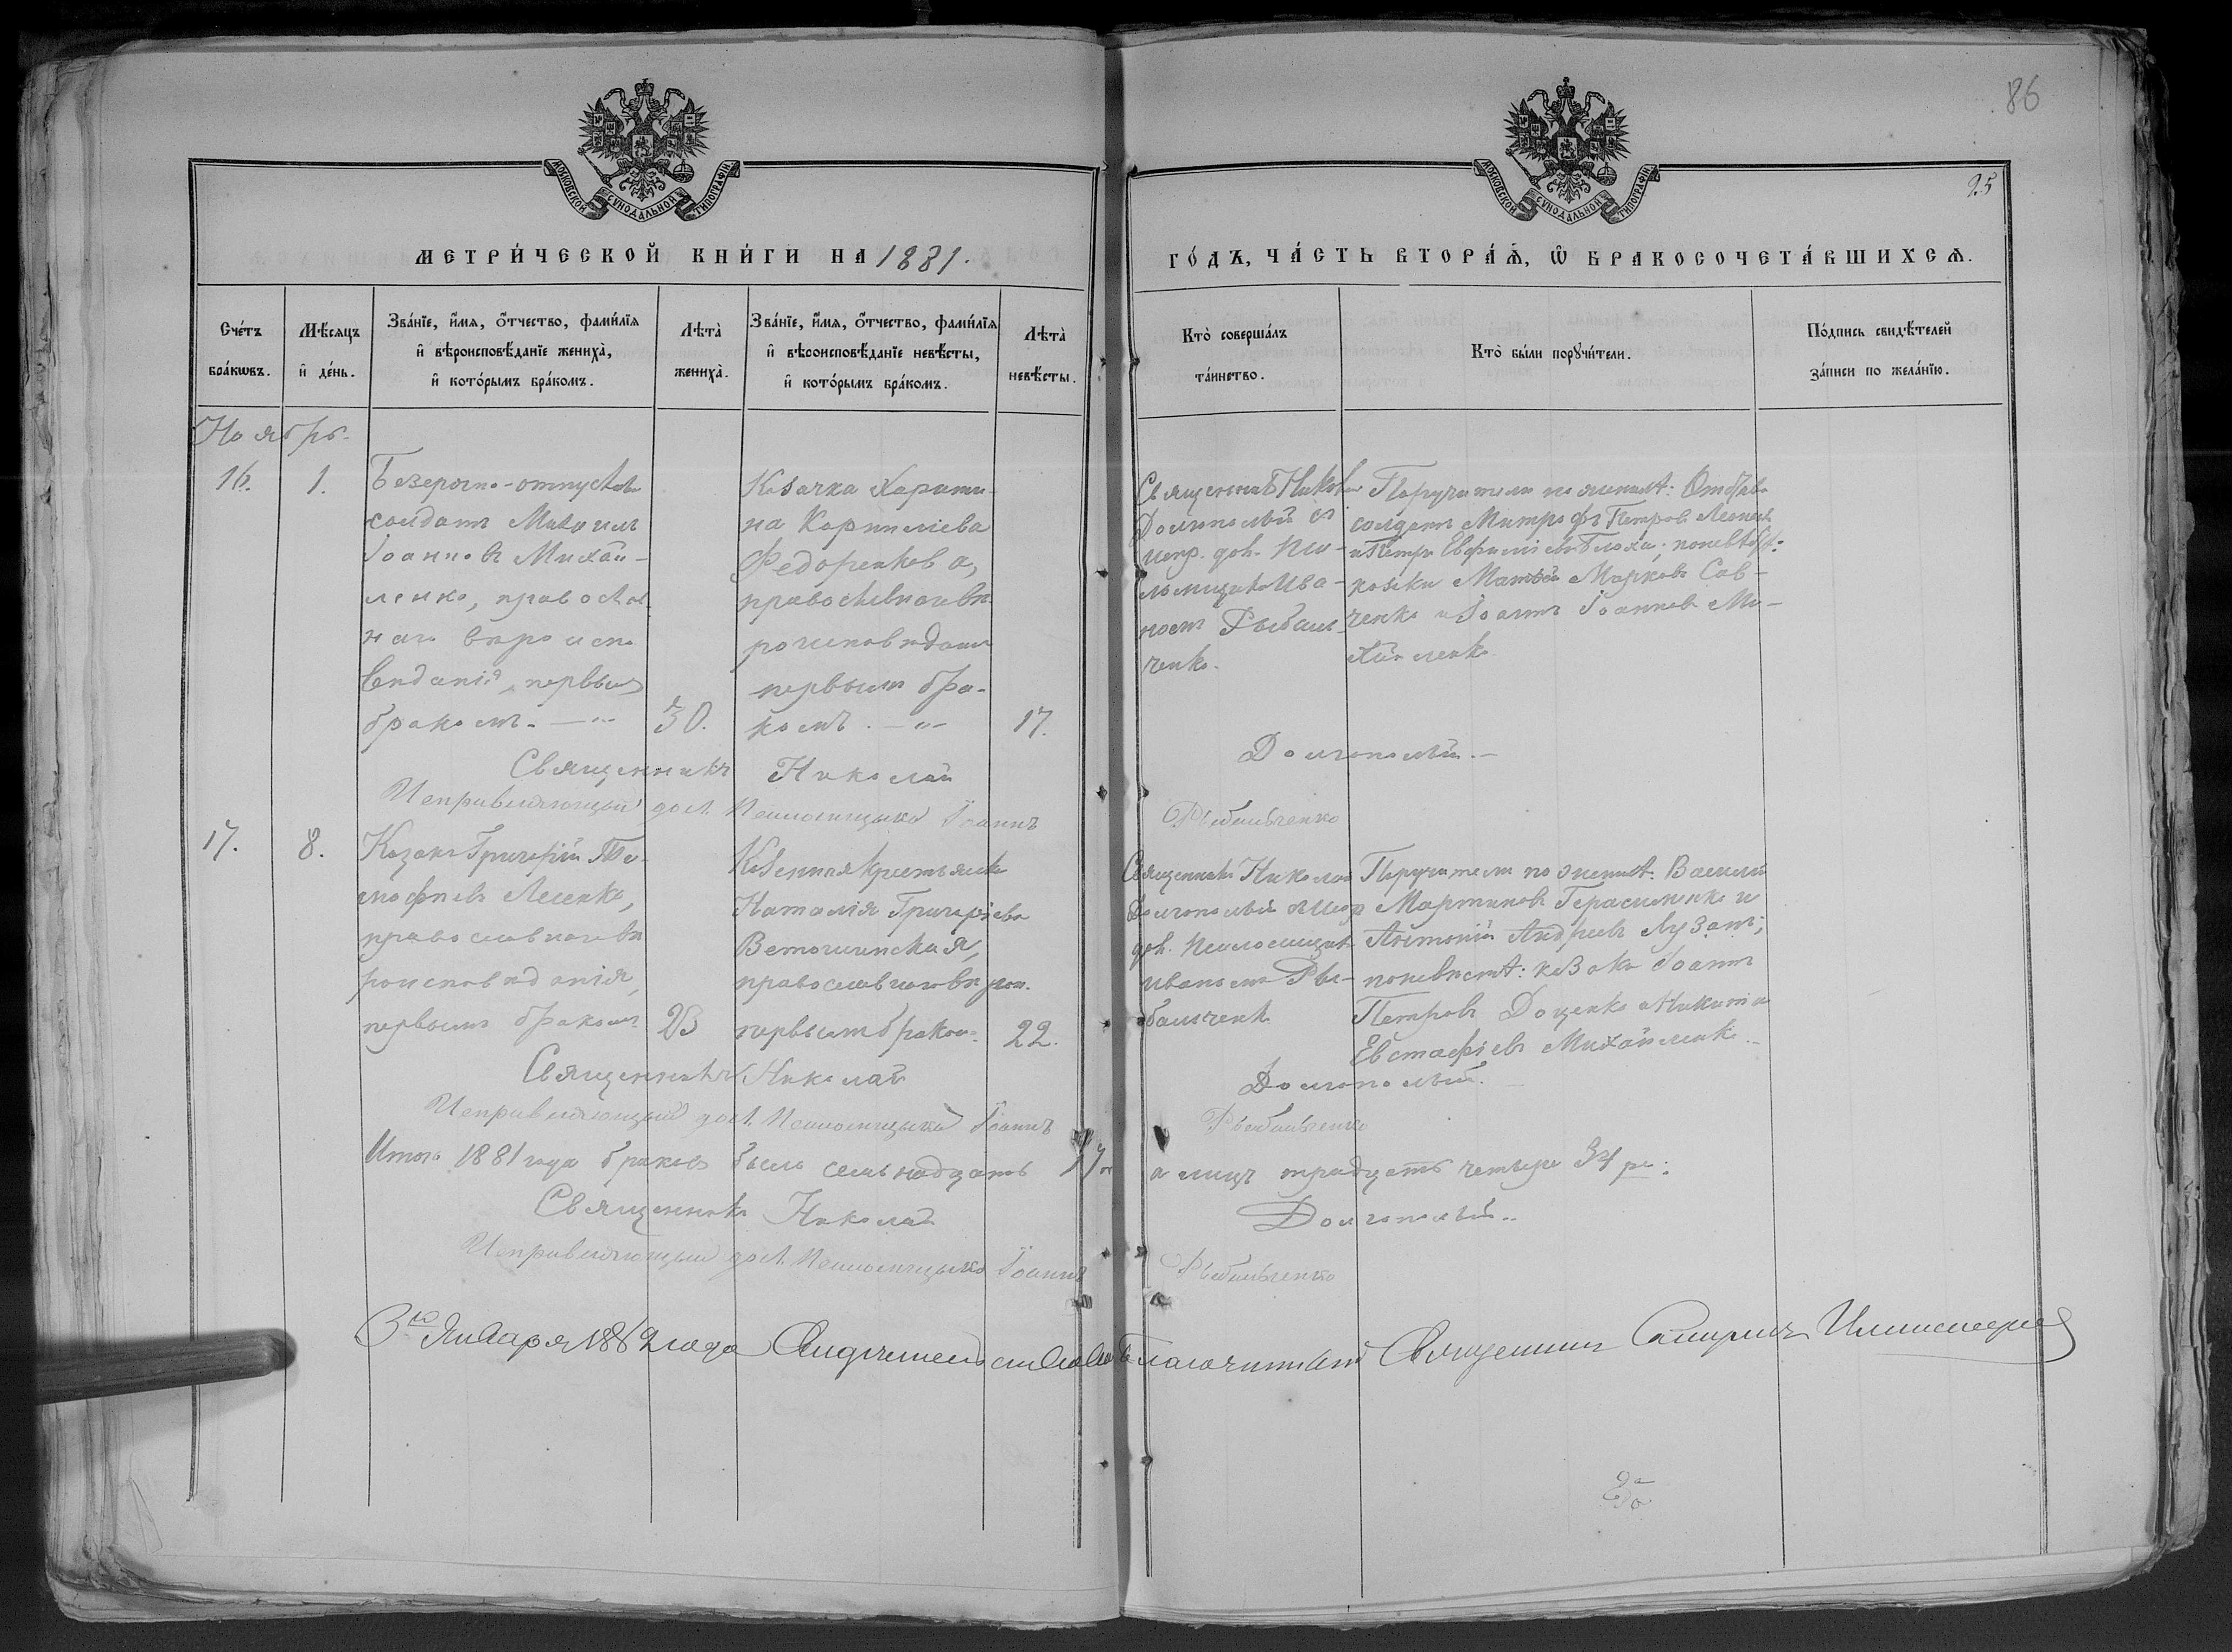 86
МОСКОВСКОЙ СѴНОДАЛЬНОЙ ТИПОГРАФІИ
МОСКОВСКОЙ СѴНОДАЛЬНОЙ ТИПОГРАФІИ
25
МЕТРИ́ЧЕСКОЙ КНИ́ГИ НА 1881.
ГО́ДЪ, ЧА́СТЬ ВТОРА́Ѧ, Ѽ БРАКОСОЧЕТА́ВШИХСѦ.
Сче́тъ бра́кѡвъ.
Мѣ́сяцъ и҆ де́нь.
Зва́нїе, и҆́мѧ, ѻ҆́тчество, фами́лїѧ
и҆ вѣроисповѣ́данїе женихà,
и҆ кото́рымъ бра́комъ.
Лѣтà
женихà.
Зва́нїе, и҆́мѧ, ѻ҆́тчество, фами́лїѧ
и҆ вѣроисповѣ́данїе невѣ́сты,
и҆ кото́рымъ бра́комъ.
Лѣтà
невѣ́сты.
Ктò соверша́лъ
та́инство.
Ктò бы́ли порꙋчи́тели.
По́дпись свидѣ́телей
за́писи по жела́нїю.
Ноябрь.
16.
1.
Безсрочно-отпускной
солдатъ Михаилъ
Іоанновъ Михай-
ленко, православ
наго вѣроиспо
вѣданія, первымъ
бракомъ. — "
30.
Козачка Харити-
на Корнилiева
Федоренкова,
православнаго вѣ
роисповѣданія
первымъ бра-
комъ. — "
17.
Священникъ Николай
Долгополый съ
испр. дол. Пса-
ломщика Ива-
номъ Рыбаль
ченко.
Поручители по женихѣ: Отстав.
солдатъ Митрофъ Петровъ
и Петръ Евфиміевъ Блоха; по невѣстѣ:
козаки Матвѣй Марковъ Сав-
ченко и Іоаннъ Іоанновъ Ми-
хайленко
Священникъ Николай Долгополый. —
Исправляющій дол. Псаломщика Іоаннъ Рыбальченко
17.
8.
Козакъ Григорій Ти-
мофѣевъ Лесенко,
православнаго вѣ
роисповѣданія,
первымъ бракомъ
23
Казенная крестьянка
Наталія Григоріева
православнаго вѣрои.
первымъ бракомъ.
22.
Священникъ Николай
Долгополый съ испр
дол. Псаломщика
Иваномъ Ры-
бальченко
Поручители по женихѣ: Василій
Мартиновъ Герасименко и
Антоній Андреевъ Лузанъ;
по невѣстѣ: козакъ Іоаннъ
Петровъ Доценко и Никита
Евстафіевъ Михайленко.
Священникъ Николай Долгополый.
Исправляющій дол. Псаломщика Іоаннъ Рыбальченко
Итого 1881 года браковъ было семьнадцать 17
а лицъ тридцать четыре 34
Священникъ Николай Долгополый..
Исправляющій дол. Псаломщика Іоаннъ Рыбальченко
3го Января 1882 года Свидѣтельствовалъ Благочинный Священникъ